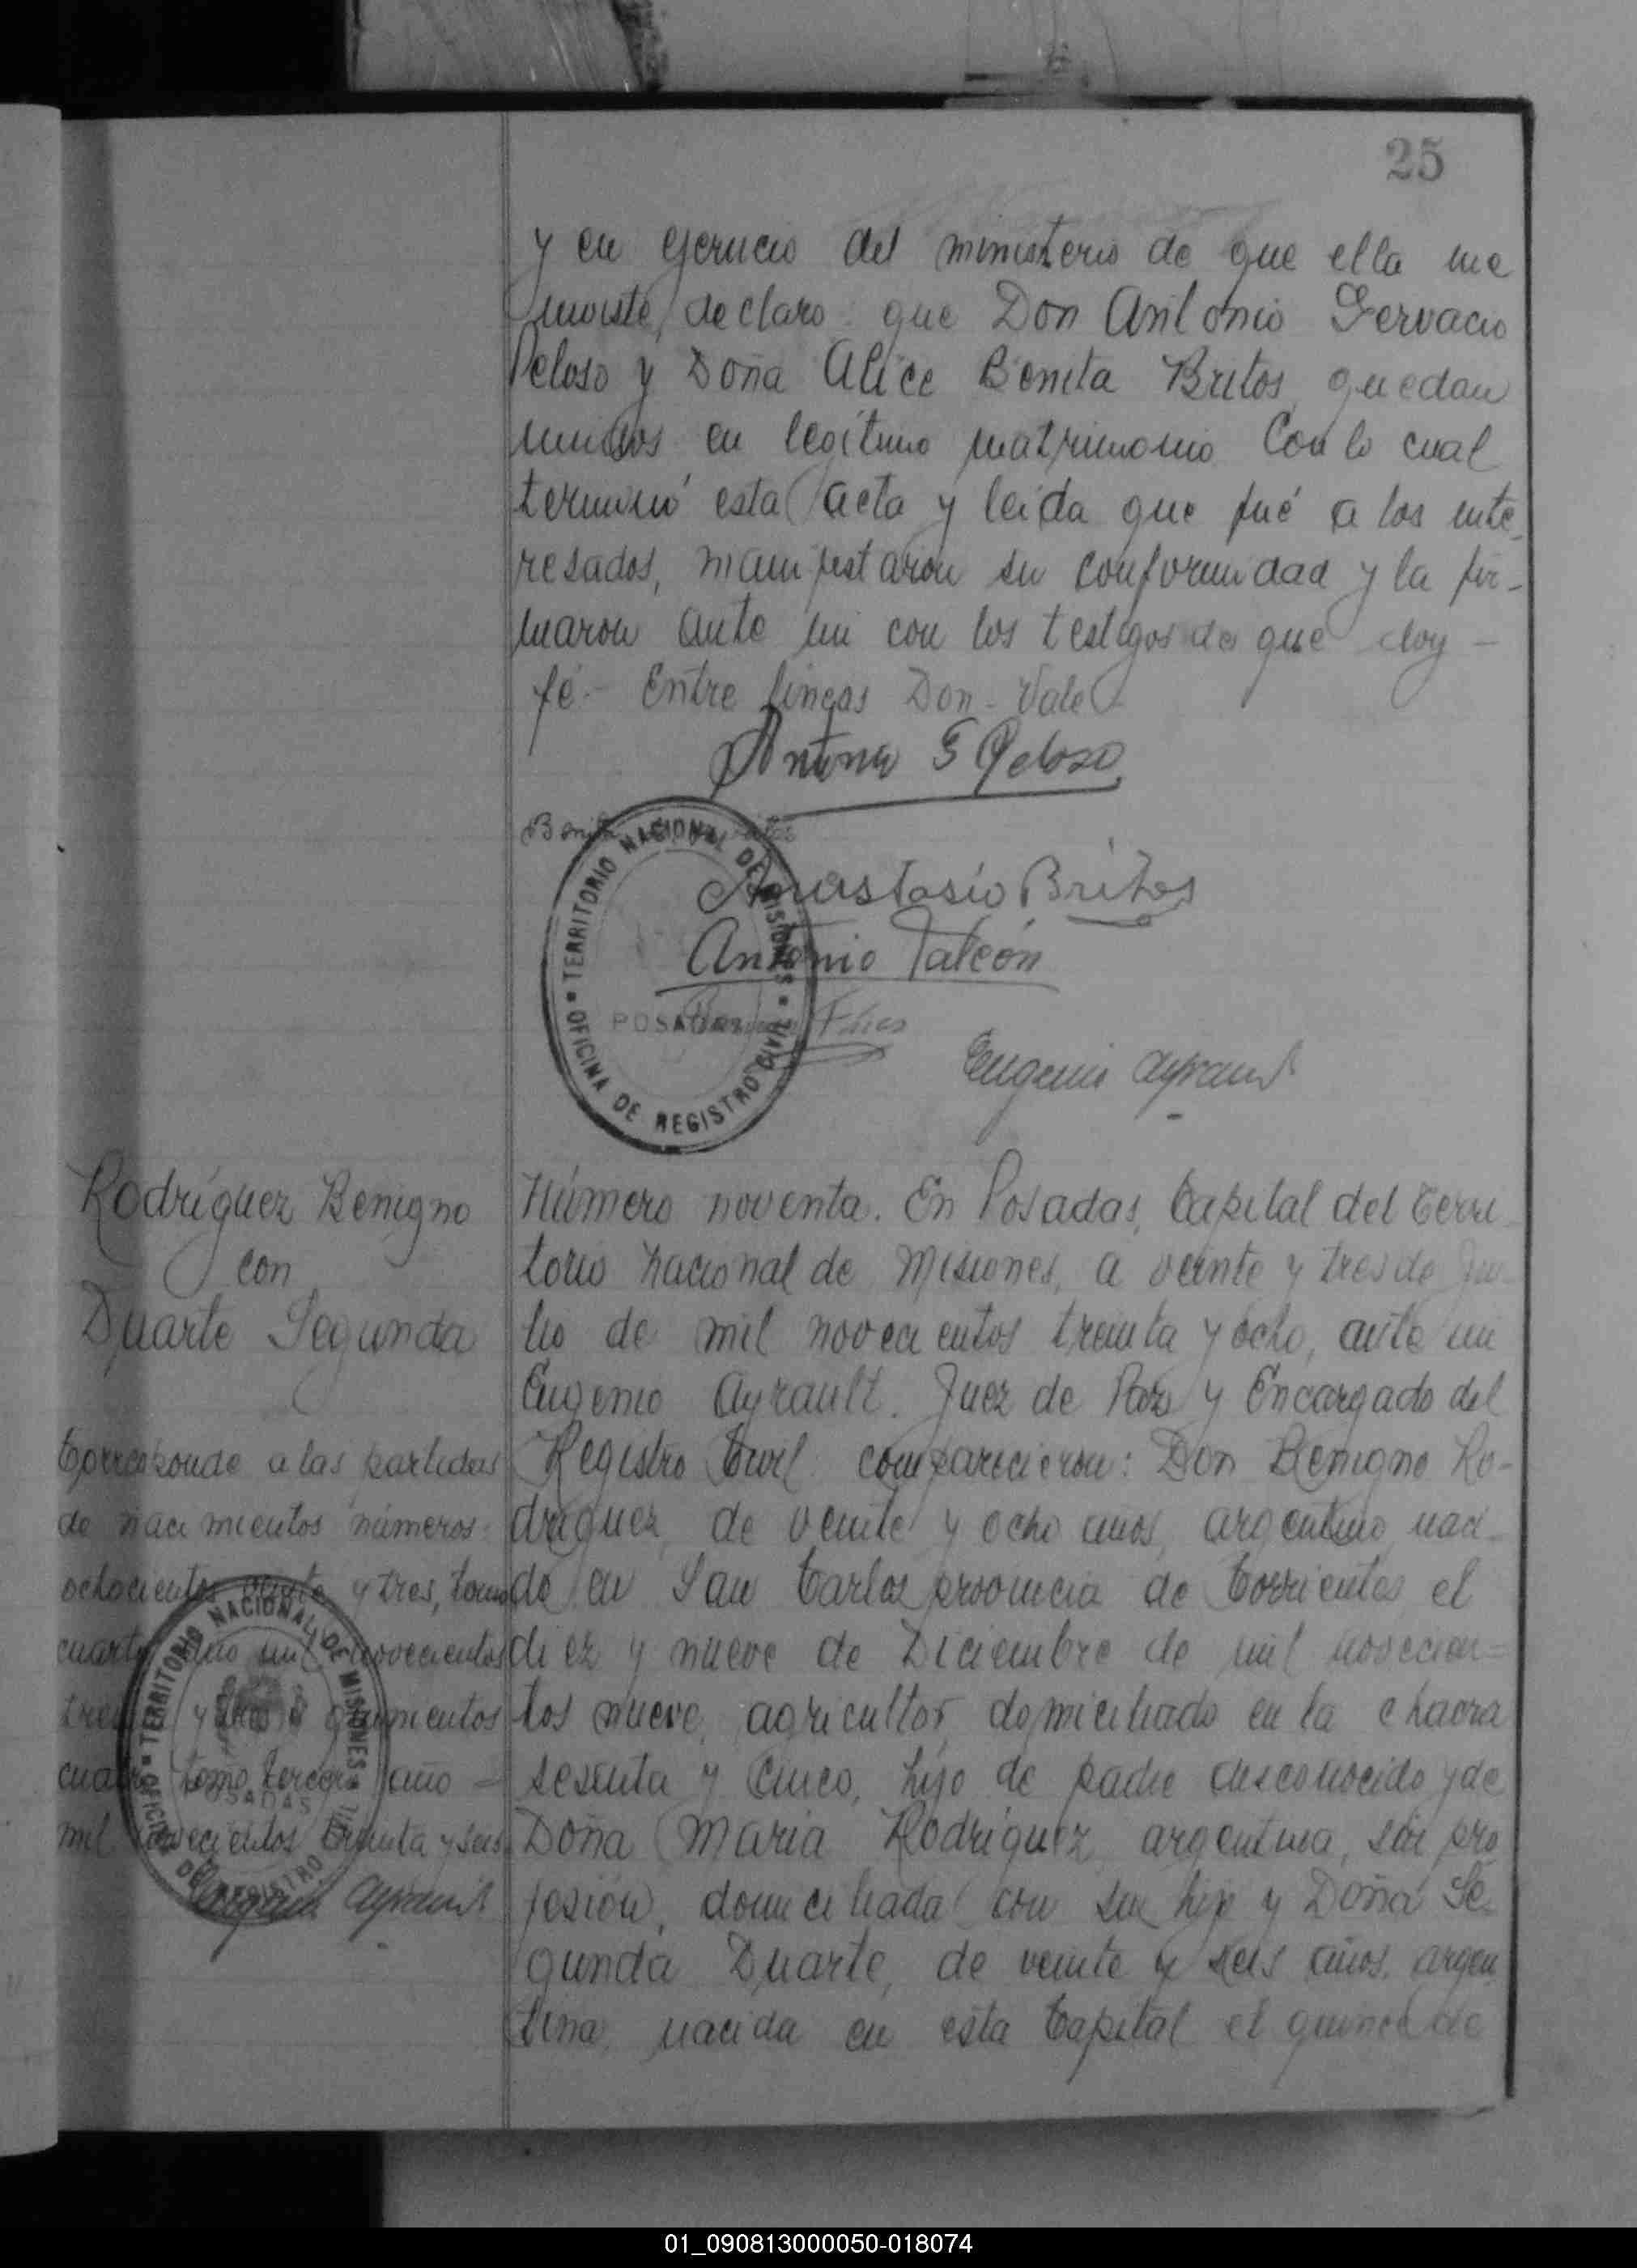 25
y en ejercicio del ministerio de que ella me
inviste, declaro: que Don Antonio Gervacio
Peloso y Doña Alice Benita Britos, quedan
unidos en legítimo matrimonio. Con lo cual
terminó esta acta y leida que fué a los inte-
resados, manifestaron su conformidad y la fir-
maron ante mi con los testigos de que doy -
fé.- Entre lineas Don - Vale
Antonio G Peloso
Benita Britos
Anastasio Britos
Antonio Falcón
Eugenio Ayrault
TERRITORIO NACIONAL DE MISIONES
OFICINA DE REGISTRO CIVIL
POSADAS
Rodríguez Benigno
con
Duarte Segunda
Corresponde a las partidas
de nacimientos números:
ochocientos veinte y tres, tomo
cuarto año mil novecientos
treinta y quinientos
cuatro tomo tercero año -
mil novecientos treinta y seis
Eugenio Ayrault
TERRITORIO NACIONAL DE MISIONES
OFICINA DE REGISTRO CIVIL
POSADAS
Número noventa. En Posadas, Capital del Terri-
torio Nacional de Misiones, a veinte y tres de Ju-
lio de mil novecientos treinta y ocho, ante mi
Eugenio Ayrault. Juez de Paz y Encargado del
Registro Civil comparecieron: Don Benigno Ro-
driguez, de veinte y ocho años, argentino, naci-
do en San Carlos provincia de Corrientes el
diez y nueve de Diciembre de mil novecien=
tos nueve, agricultor, domiciliado en la chacra
sesenta y cinco, hijo de padre desconocido y de
Doña Maria Rodriguez, argentina, sin pro
fesión, domiciliada con su hijo y Doña Se-
gunda Duarte, de veinte y seis años, argen
tina, nacida en esta Capital el quince de
01_090813000050-018074